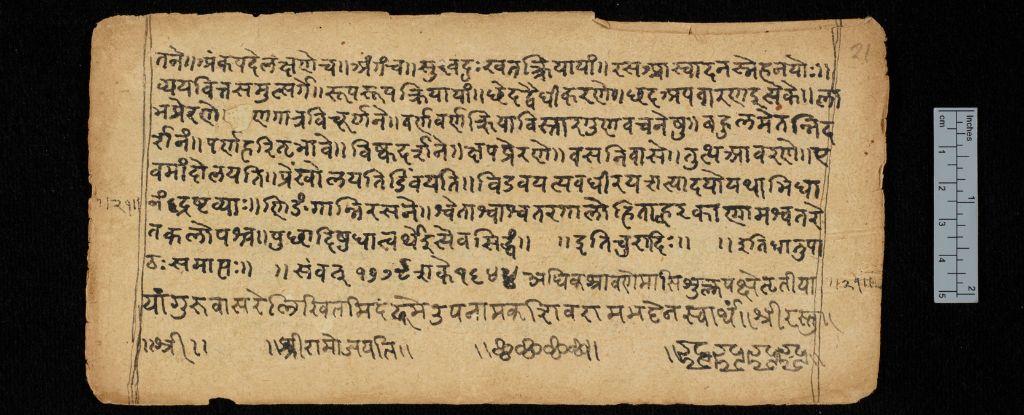 तने॥अंकपदेलक्षणेच॥अंगंच॥सुखदुःखतत्क्रियायां॥रसआस्वादनस्नेहनयोः॥
व्ययवित्तसमुत्सर्गे॥रूपरूपक्रियायां॥छेदद्वैधीकरणे॥छदअपवारणइत्येके॥ला
भप्रेरणे॥ व्रणगात्रविचूर्णने॥वर्णवर्णक्रियाविस्तारगुणवचनेषु॥बहुलमेतन्निद
र्शनं॥पर्णहरितभावे॥विष्कदर्शने॥क्षपप्रेरणे॥वसनिवासे॥तुत्थआवरणे॥ए
वमांदोलयति॥प्रेंखोलयतिडिंवयति॥विडवयत्यवधीरयत्यादयोयथाभिधा
नंद्रष्टव्याः॥णिङंगान्निरसने॥श्वेताश्वाश्वतरगालोहिताह्वरकाणामश्वतरे
तकलोपश्च॥पुछादिषुधात्वर्थेइत्येवसिद्धं॥ ॥इतिचुरादिः॥ ॥इतिधातुपा
ठःसमाप्तः॥ ॥संवत् शके अधिकश्रावणेमासिशुक्लपक्षेतृतीया
यांगुरुवासरेलिखितमिदं उपनामक स्वार्थं॥श्रीरस्तु॥
॥श्री॥ ॥श्रीरामोजयति॥
21
॥२१॥
॥२१॥
Inches
cm
1
2
3
4
5
1
2